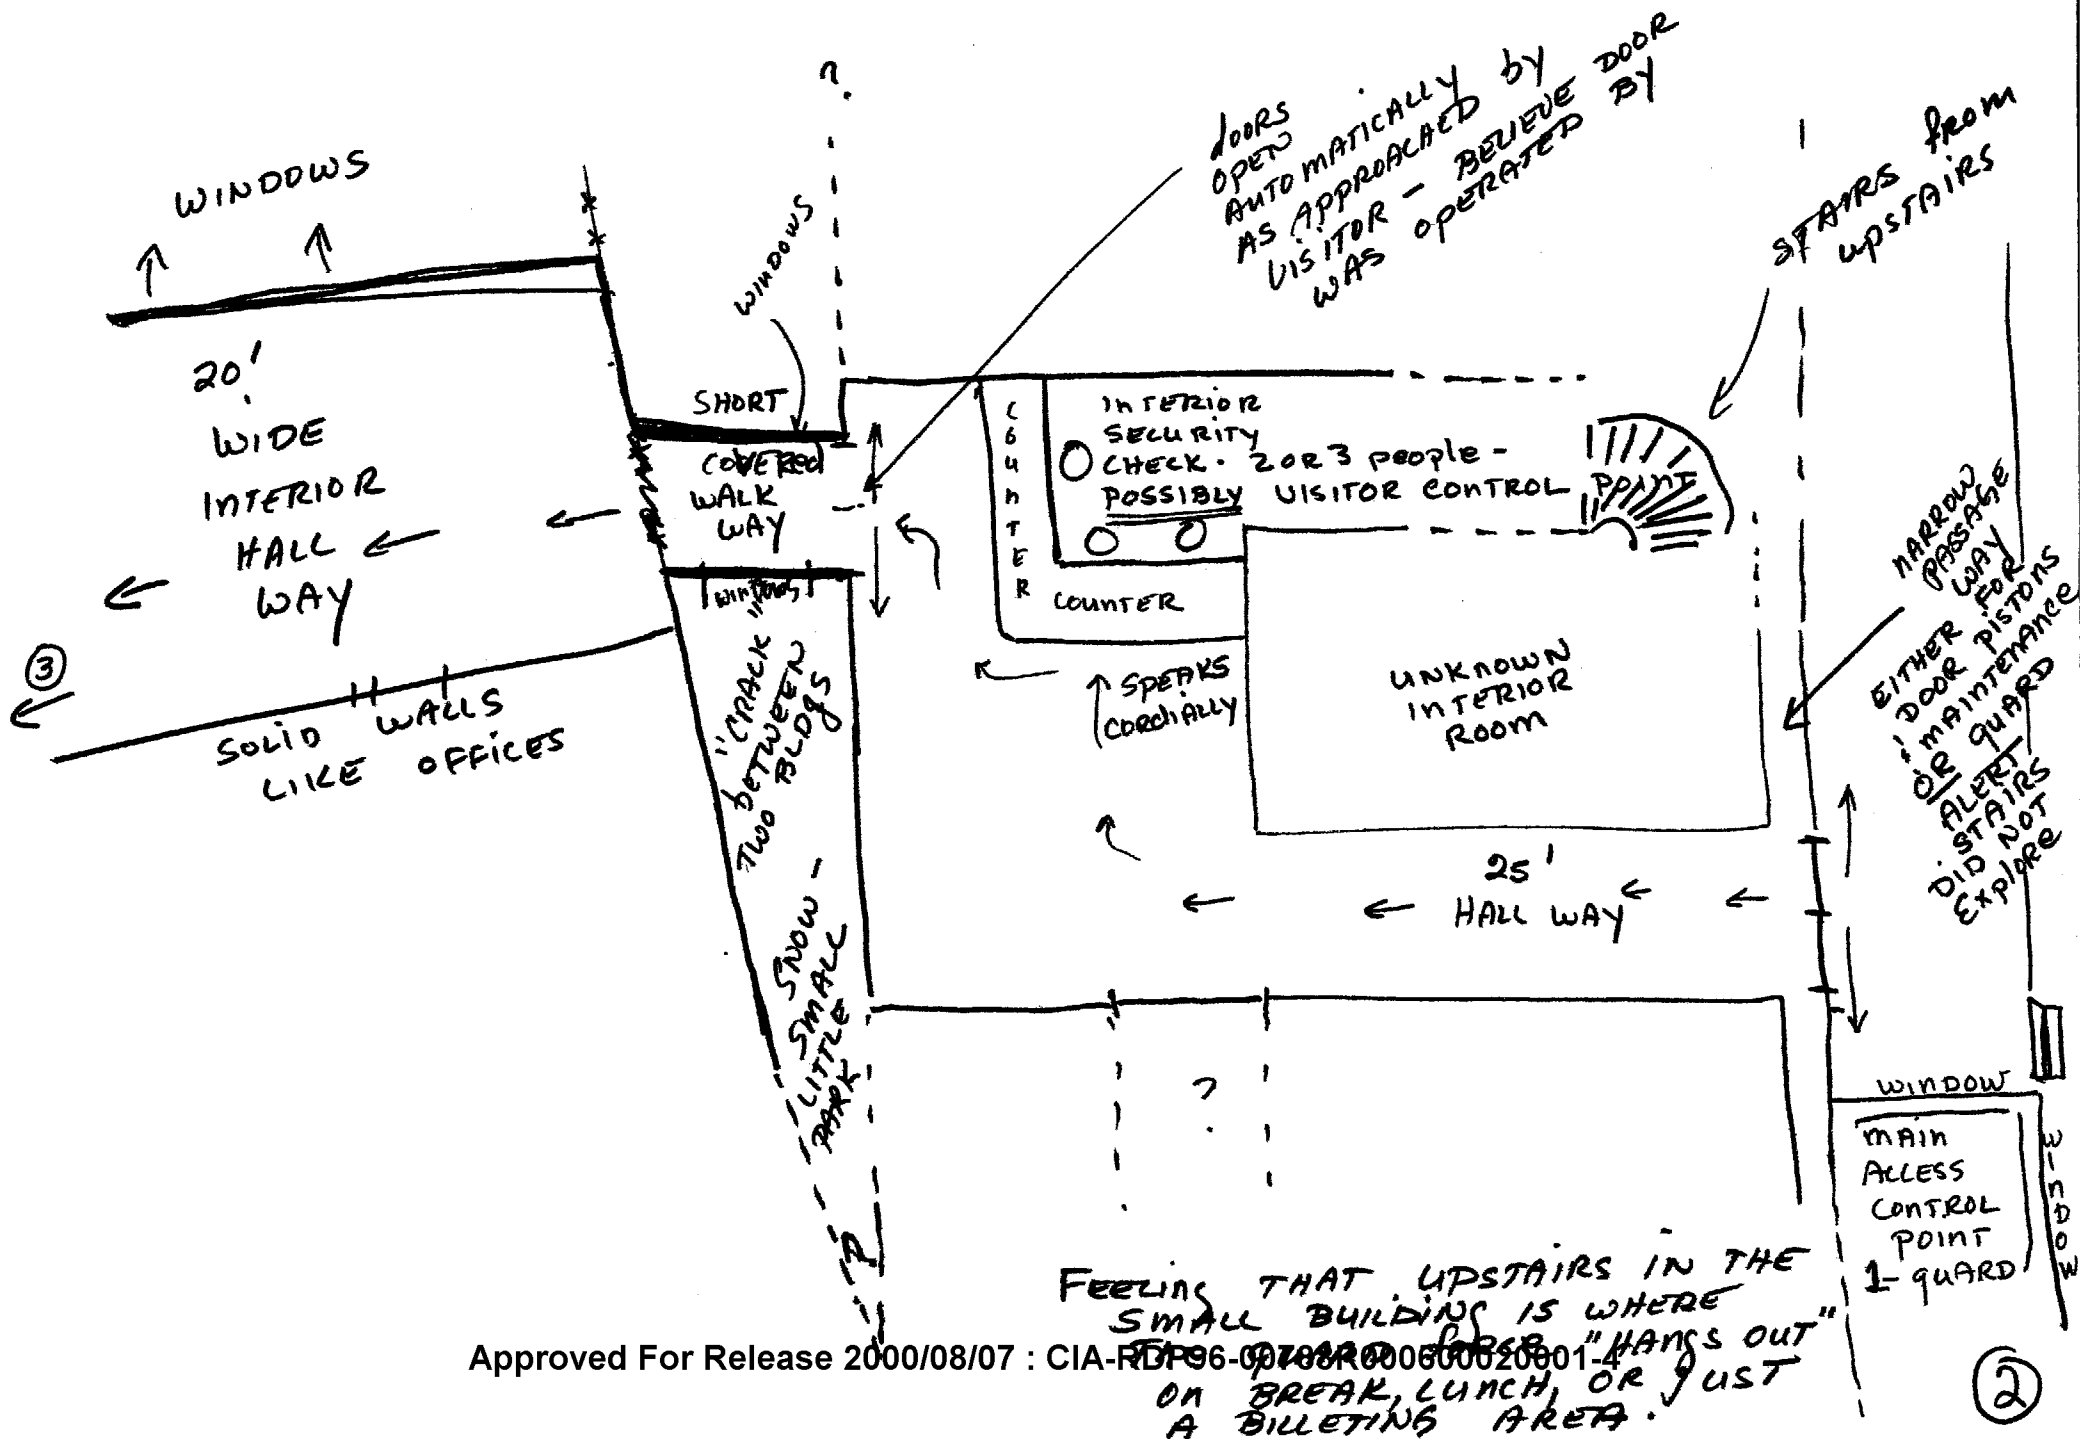 ?
WINDOWS
20'
WIDE
INTERIOR
HALL
WAY
3
SOLID WALLS
LIKE OFFICES
WINDOWS
SHORT
COVERED
WALK
WAY
WINDOWS
"CRACK"
BETWEEN
TWO BLDgS
SNOW -
SMALL
LITTLE
PARK
?
dOORS
OPEN
AUTOMATICALLY by
AS APPROACAED
VISITOR - BELIEVE DOOR
WAS OPERATED BY
STAIRS from
upSTAIRS
COUNTER
INTERIOR
SECURITY
CHECK. 2 OR 3 people -
POSSIBLY VISITOR CONTROL POINT
COUNTER
SPEAKS
CORdiALLY
UNKNOWN
INTERIOR
ROOM
25'
HALL WAY
?
NARROW
PASSAGE
WAY
FOR
EITHER
DOOR PISTONS
MAINTENANCE
OR GUARD
ALERT
STAIRS
DID NOT
Explore
WINDOW
MAIN
ACCESS
CONTROL
POINT
1- GUARD
WINDOW
FEELING THAT UPSTAIRS IN THE
SMALL BUILDING IS WHERE
THE GUARD forse "HANGS OUT"
ON BREAK, LUNCH, OR JUST
A BILLETING AREA.
Approved For Release 2000/08/07 : CIA-RDP96-00788R000600020001-4
2